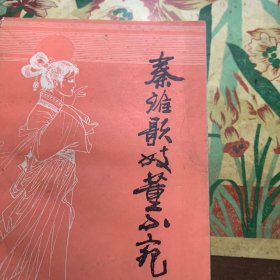 秦淮歌妓董小宛